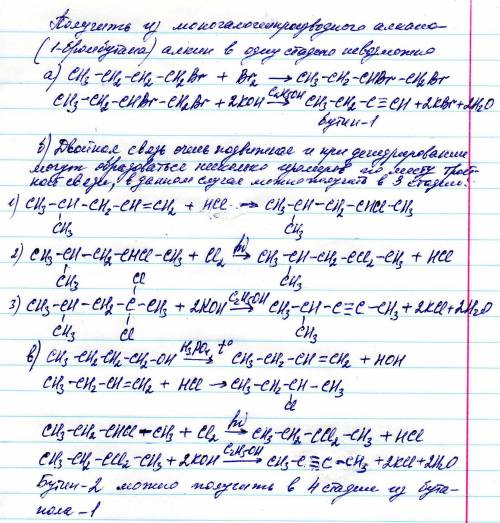 Получить из моногалогенпроизводного алкана
(1-бромбутана) алкин в одну стадию невозможно
а) CH₃-CH₂-CH₂-CH₂Br + Br₂ → CH₃-CH₂-CHBr-CH₂Br
CH₃-CH₂-CHBr-CH₂Br + 2KOH C₂H₅OH → CH₃-CH₂-C≡CH + 2KBr + 2H₂O
Бутин-1
б) Двойная связь очень подвижная и при дегидрировании
могут образоваться несколько изомеров по месту трой-
ной связи, в данном случае можно получить в 3 стадии:
1) CH₃-CH-CH₂-CH=CH₂ + HCl → CH₃-CH-CH₂-CHCl-CH₃
CH₃ CH₃
2) CH₃-CH-CH₂-CHCl-CH₃ + Cl₂ hν → CH₃-CH-CH₂-CCl₂-CH₃ + HCl
CH₃ Cl CH₃
3) CH₃-CH-CH₂-C-CH₃ + 2KOH C₂H₅OH → CH₃-CH-C≡C-CH₃ + 2KCl + 2H₂O
CH₃ Cl CH₃
в) CH₃-CH₂-CH₂-CH₂-OH H₃PO₄, t° → CH₃-CH₂-CH=CH₂ + HOH
CH₃-CH₂-CH=CH₂ + HCl → CH₃-CH₂-CH-CH₃
Cl
CH₃-CH₂-CHCl-CH₃ + Cl₂ hν → CH₃-CH₂-CCl₂-CH₃ + HCl
CH₃-CH₂-CCl₂-CH₃ + 2KOH C₂H₅OH → CH₃-C≡C-CH₃ + 2KCl + 2H₂O
Бутин-2 можно получить в 4 стадии из бута-
нола-1